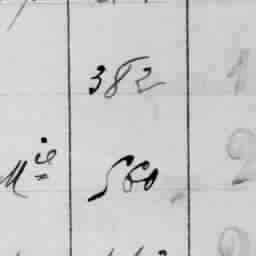 382 1
Mie 560 2